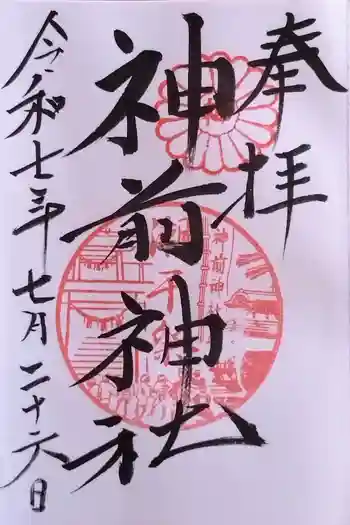 奉拝
神前神社
令和七年七月二十六日